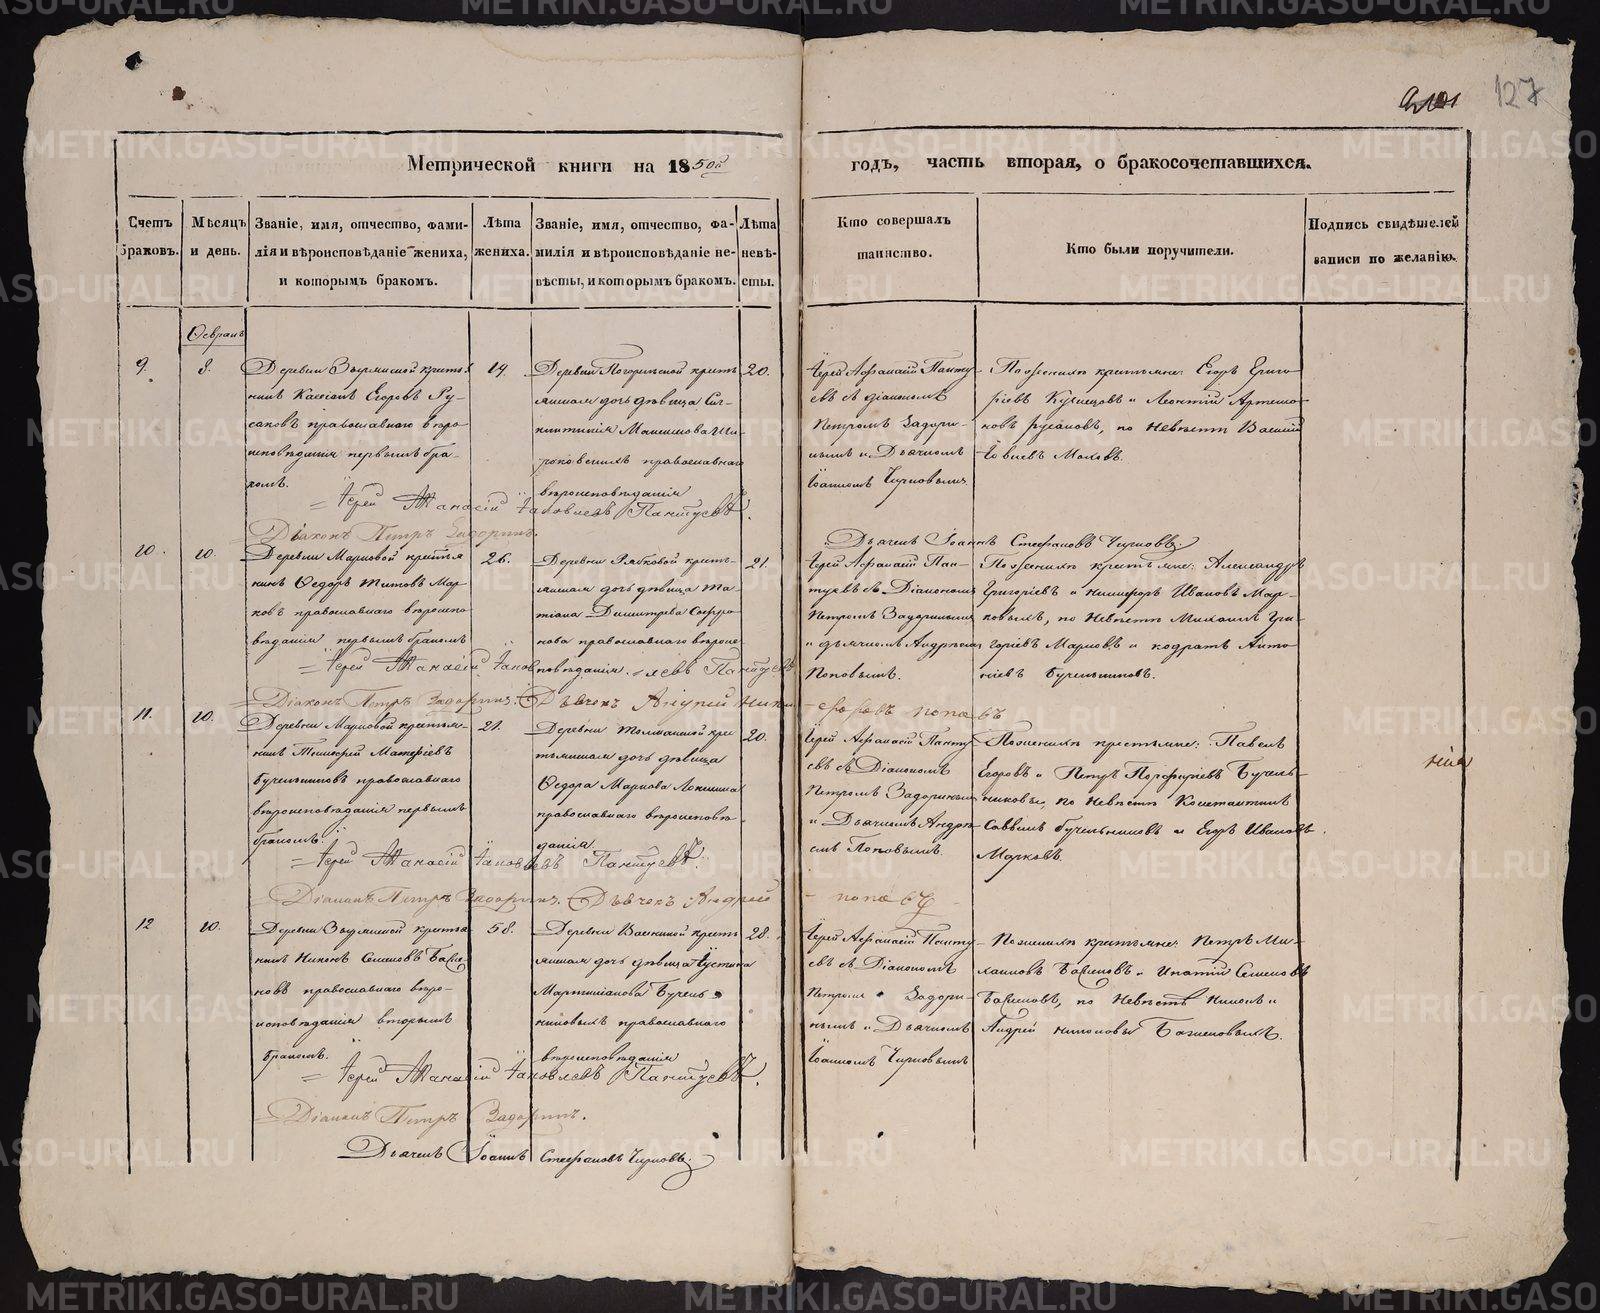 127
Метрической книги на 1850й годъ, часть вторая, о бракосочетавшихся.
Счетъ браковъ.
Мѣсяцъ и день.
Званіе, имя, отчество, фами-
лія и вѣроисповѣданіе жениха,
и которымъ бракомъ.
Лѣта
жениха.
Званіе, имя, отчество, фа-
милія и вѣроисповѣданіе не-
вѣсты, и которымъ бракомъ.
Лѣта
невѣ-
сты.
Кто совершалъ
таинство.
Кто были поручители.
Подпись свидѣтелей
записи по желанію.
9.
8.
Деревни
Егоровъ Ру-
саковъ православнаго вѣро-
исповѣданія первымъ бра-
комъ.
19.
Деревни
дочь дѣвица
православнаго
вѣроисповѣданія
20.
Іерей Афанасій Панту-
евъ съ Діакономъ
Петромъ Задори-
нымъ и Дьячкомъ
Іоанномъ Чирковымъ
По женихѣ крестьяне: Егоръ Григо-
рьевъ Кузнецовъ и Леонтій Артемо-
новъ Русаковъ, по невѣстѣ Василій
= Іерей Афанасій Іаковлевъ Пантуевъ.
Діаконъ Петръ Задоринъ.
Дьячекъ Іоаннъ Стефановъ Чирковъ.
10.
10.
Деревни Марковой крестья
нинъ Ѳедоръ Титовъ Мар-
ковъ православнаго вѣроиспо
вѣданія первымъ бракомъ
26.
Деревни Рябковой кресть-
янская дочь дѣвица Та-
тіана Димитрева Софро-
нова православнаго вѣроис-
повѣданія
21.
Іерей Афанасій Пан-
туевъ съ Діакономъ
Петромъ Задоринымъ
и дьячкомъ Андреемъ
Поповымъ.
По женихѣ крестьяне: Александръ
Григоріевъ и Никифоръ Ивановъ Мар-
ковы, по невѣстѣ Михаилъ Гри-
горіевъ Марковъ и Кодратъ Анто
ніевъ Бучельниковъ.
= Іерей Афанасій Іаковлевъ Пантуевъ
Діаконъ Петръ Задоринъ. Дьячекъ Андрей Ники-
форовъ Поповъ
11.
10.
Деревни Марковой крестья-
нинъ Тимофей
Бучельниковъ православнаго
вѣроисповѣданія первымъ
бракомъ.
21.
Деревни
дочь дѣвица
Ѳедора Маркова
православнаго вѣроисповѣ-
данія.
20.
Іерей Афанасій Панту
евъ съ Діакономъ
Петромъ Задоринымъ
и Дьячкомъ Андре-
емъ Поповымъ.
По женихѣ крестьяне: Павелъ
Егоровъ и Петръ Порфирьевъ Бучель-
никовы, по невѣстѣ Константинъ
Саввинъ Бучельниковъ и Егоръ Ивановъ
Марковъ.
= Іерей Афанасій Іаковлевъ Пантуевъ.
Діаконъ Петръ Задоринъ. Дьячекъ Андрей
Поповъ
12
10.
Деревни
нинъ Никонъ Семеновъ Баже-
новъ православнаго вѣро-
исповѣданія вторымъ
бракомъ.
58.
Деревни
дочь дѣвица Іустина
Мартиніанова Бучель-
никовыхъ православнаго
вѣроисповѣданія
28.
Іерей Афанасій Панту
евъ съ Діакономъ
Петромъ Задори-
нымъ и Дьячкомъ
Іоанномъ Чирковымъ
По женихѣ крестьяне: Петръ Ми-
хаиловъ Баженовъ и Ипатій Семеновъ
Баженовъ, по невѣстѣ Никонъ и
Андрей Никоновы Баженовыхъ.
= Іерей Афанасій Іаковлевъ Пантуевъ.
Діаконъ Петръ Задоринъ.
Дьячекъ Іоаннъ Стефановъ Чирковъ.
METRIKI.GASO-URAL.RU